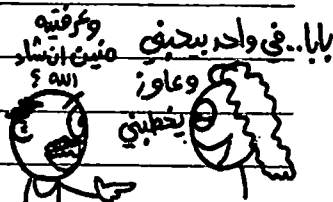 بابا..في واحد بيحبني
وعاوز
يخطبني
وعرفتيه
منين انشاء
الله ؟